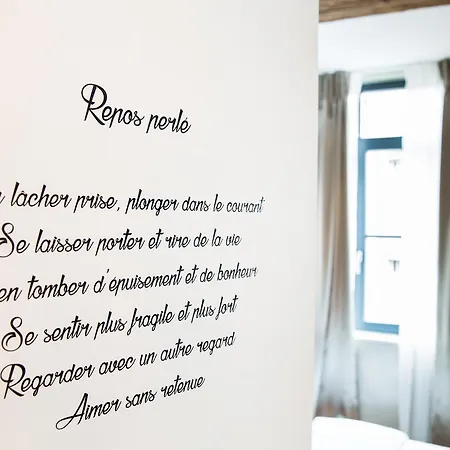 Repos perlé
lâcher prise, plonger dans le courant
Se laisser porter et rire de la vie
en tomber d'épuisement et de bonheur
Se sentir plus fragile et plus fort
Regarder avec un autre regard
Aimer sans retenue